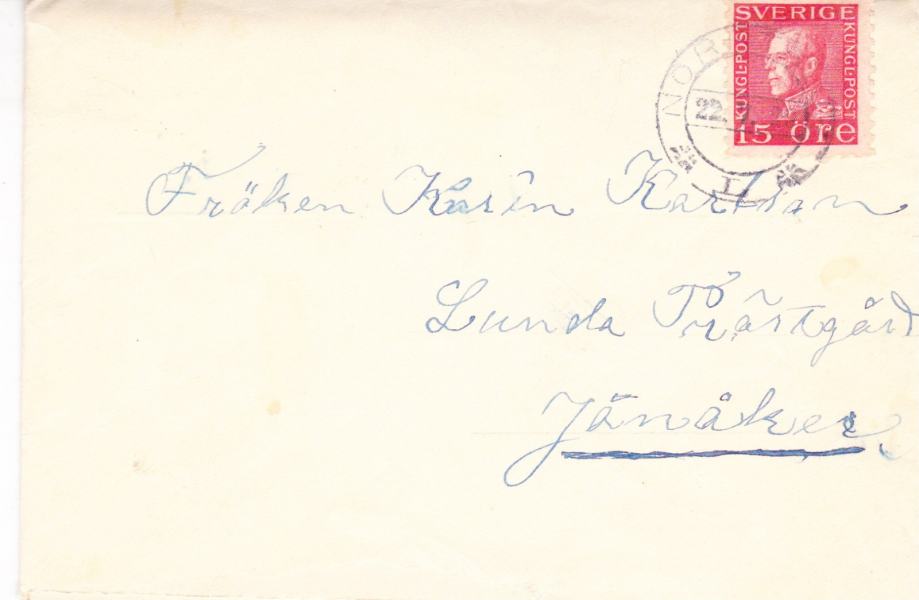 SVERIGE
KUNGL·POST
KUNGL·POST
15 öre
NOR
22
Fröken Karin Karlsson
Lunda Prästgård
Jönåker